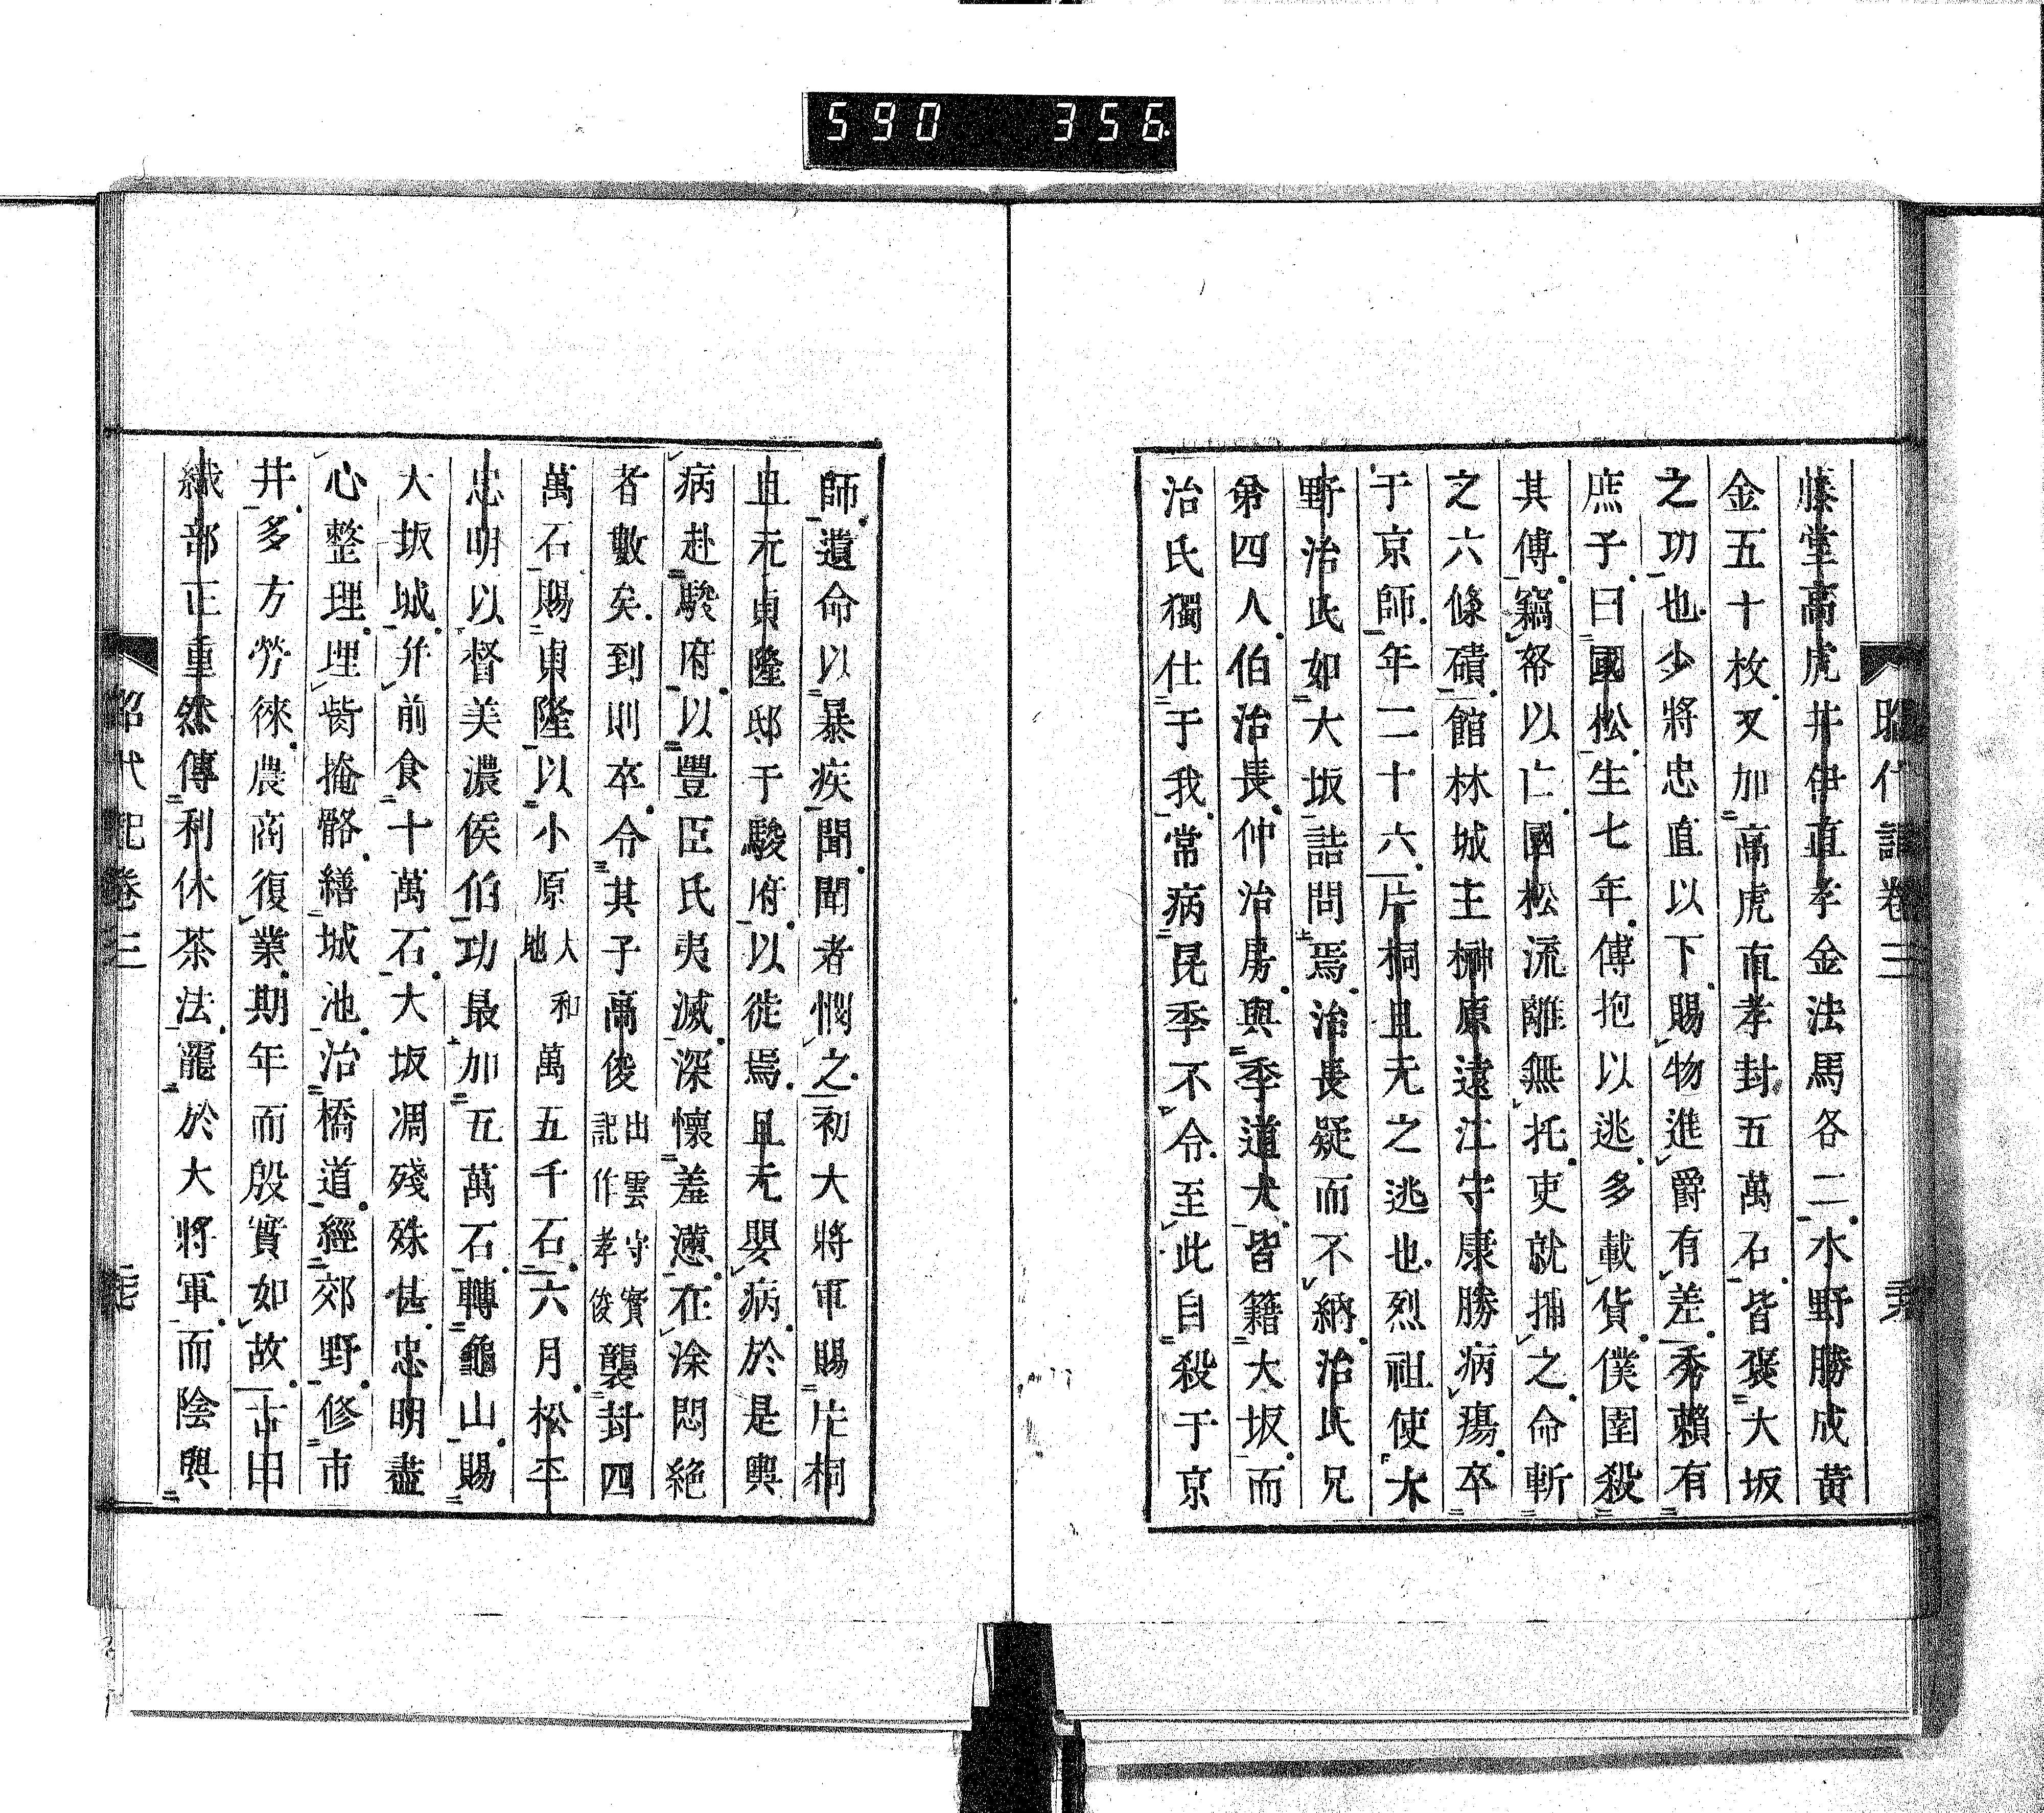 590 356
昭代記卷三
藤堂高虎井伊直孝金法馬各二水野勝成黃
金五十枚又加高虎直孝封五萬石皆褒大坂
之功也少將忠直以下賜物進爵有差秀賴有
庶子曰國松生七年傅抱以逃多載貨僕圉殺
其傅竊帑以亡國松流離無托吏就捕之命斬
之六條磧館林城主榊原遠江守康勝病瘍卒
于京師年二十六片桐且元之逃也烈祖使大
野治氏如大坂詰問焉治長疑而不納治氏兄
弟四人伯治長仲治房與季道犬皆籍大坂而
治氏獨仕于我常病昆季不令至此自殺于京
師遺命以暴疾聞聞者憫之初大將軍賜片桐
且元貞隆邸于駿府以徙焉且元嬰病於是輿
病赴駿府以豐臣氏夷滅深懷羞懣在涂悶絕
者數矣到則卒令其子高俊出雲守實記作孝俊襲封四
萬石賜貞隆以小原大和地萬五千石六月松平
忠明以督美濃侯伯功最加五萬石轉龜山賜
大坂城幷前食十萬石大坂凋殘殊甚忠明盡
心整理埋胔掩骼繕城池治橋道經郊野修市
井多方勞徠農商復業期年而殷實如故古田
織部正重然傳利休茶法寵於大將軍而陰與
昭代記卷三